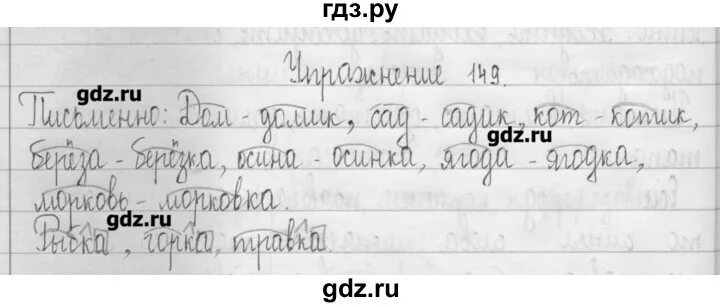 гдз.ру
Упражнение 149.
gdz.ru
Письменно: Дом - домик, сад - садик, кот - котик,
gdz.ru
берёза - берёзка, осина - осинка, ягода - ягодка,
морковь - морковка.
gdz.ru
Рыбка, горка, травка
gdz.ru